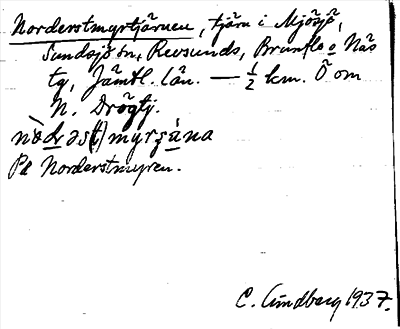 Norderstmyrtjärnen, tjärn i Mjösjö,
Sundsjö sn, Revsunds, Brunflo o Näs
tg, Jämtl. län. — ½ km. Ö om
N. Drögtj.
nòdrəs(t)myrʂána
På Norderstmyren.
C. Lindberg 1937.